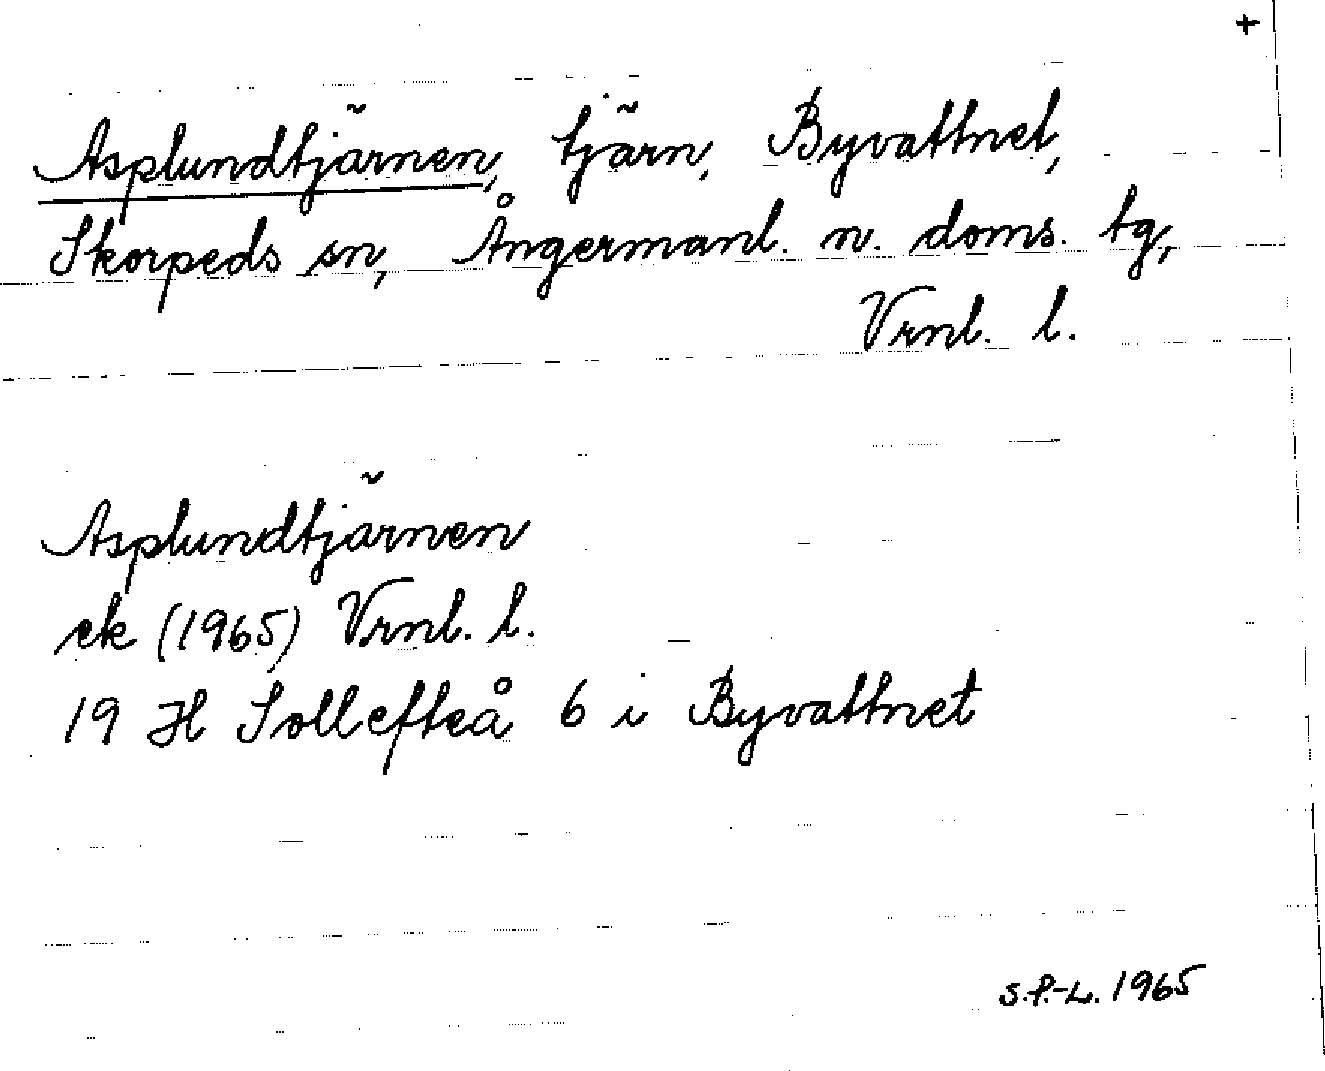 +
Asplundtjärnen, tjärn, Byvattnet,
Skorpeds sn, Ångermanl. n. doms. tg,
Vrnl. l.
Asplundtjärnen
ek (1965) Vrnl. l.
19 H Sollefteå 6 i Byvattnet
S.P.-L. 1965